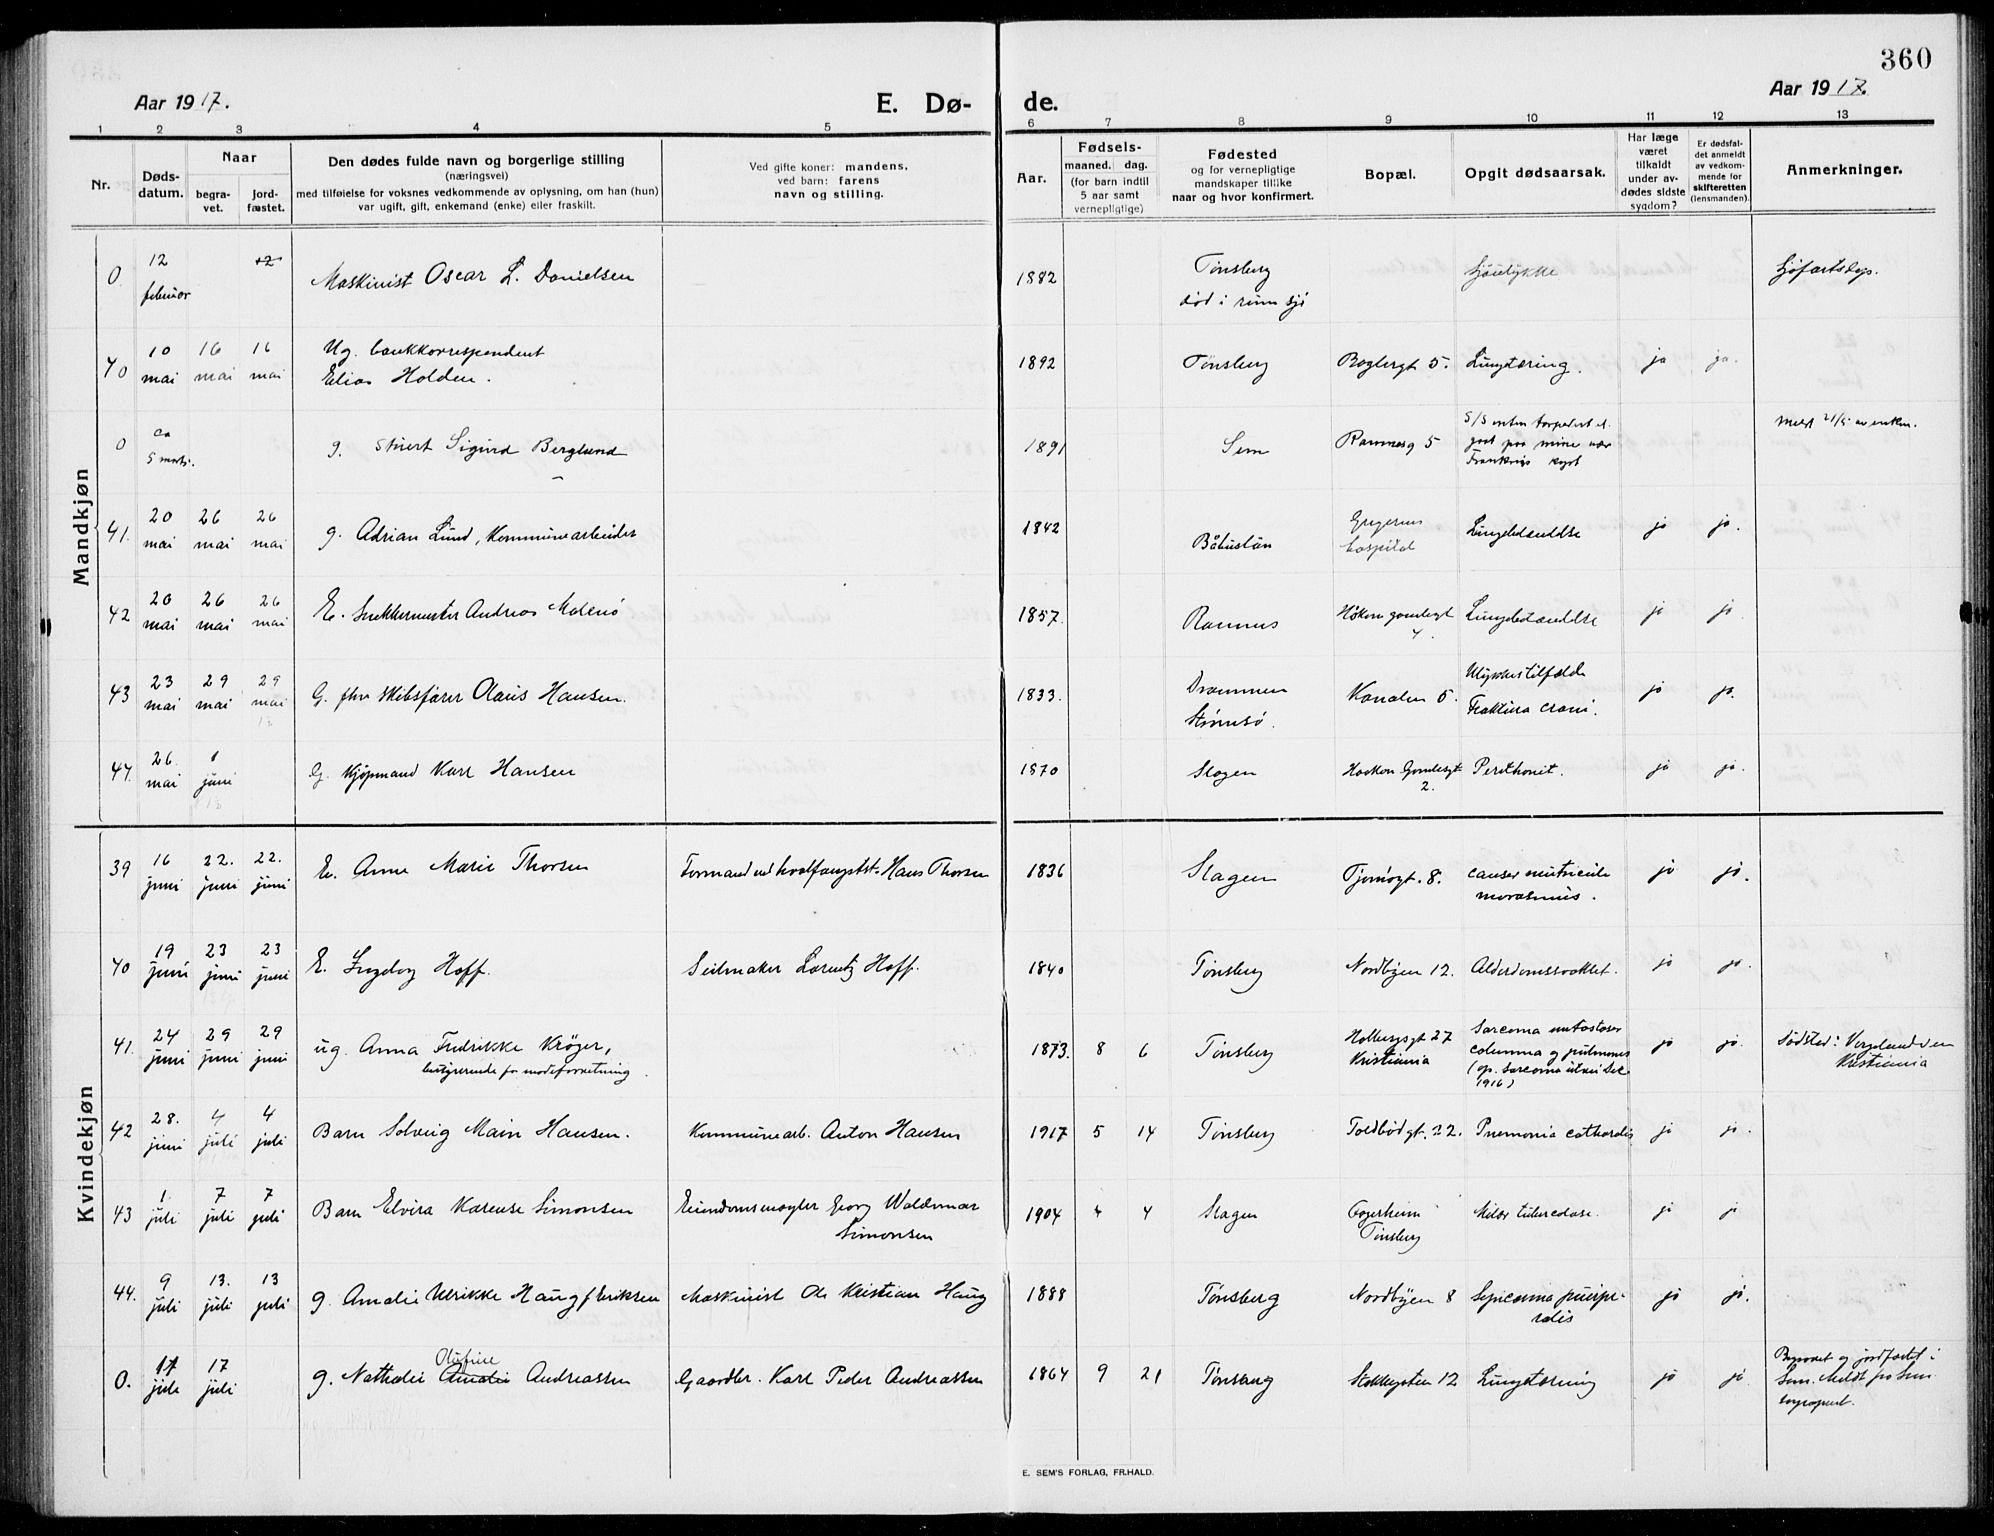 360
Aar 1917.
E. Dø-
de.
Aar 1917.
1 2 3 4 5 6 7 8 9 10 11 12 13
Nr.
Døds-
datum.
Naar
begra-
vet.
jord-
fæstet.
Den dødes fulde navn og borgerlige stilling
(næringsvei)
med tilføielse for voksnes vedkommende av oplysning, om han (hun)
var ugift, gift, enkemand (enke) eller fraskilt.
Ved gifte koner: mandens,
ved barn: farens
navn og stilling.
Aar.
Fødsels-
maaned. dag.
(for barn indtil
5 aar samt
vernepligtige)
Fødested
og for vernepligtige
mandskaper tillike
naar og hvor konfirmert.
Bopæl.
Opgit dødsaarsak.
Har læge
været
tilkaldt
under av-
dødes sidste
sygdom?
Er dødsfal-
det anmeldt
av vedkom-
mende for
skifteretten
(lensmanden).
Anmerkninger.
Mandkjøn
0 12 12 Maskinist Oscar L. Danielsen 1882 Tønsberg Sjøulykke Sjøfartsdep.
februar død i rum sjø
40 10 16 16 Ug. bankkorrespondent 1892 Tønsberg Baglergt 5. Lungetæring. ja ja.
mai mai mai Elias Holden.
0 ca g. Stuert Sigurd Berglund 1891 Sem Ramnesg 5 S/S enten torpedert el. Meldt 21/5 av enken.
5 mars. gaat paa mine nær
Frankrigs kyst
41. 20 26 26 g. Adrian Lund, Kommunearbeider 1842 Båhuslän hospital Lungebetændelse ja ja.
mai mai mai
42 20 26 26 E. Snekkermester Andreas Malmø 1857. Ramnes Håkon gamlesgt Lungebetændelse ja ja
mai mai mai 4.
43 23 29 29 G. fhv skibsfører Olaus Hansen. 1833. Drammen Kanalen 5. Ulykkestilfælde ja ja.
mai mai mai Strømsø. Fraktura crani.
44. 26. 1 G. Kjøpmand Karl Hansen 1870 Slagen Haakon Gamlesgt Perithonit. ja ja.
mai juni 2.
Kvindekjøn
39 16 22. 22. E. Anne Marie Thorsen Formand ved hvalfangstst. Hans Thorsen 1836 Slagen Tjømøgt. 8. cancer ventriculi ja ja.
juni juni juni marasmus.
40 19 23 23 E. Ingeborg Hoff. Seilmaker Lorentz Hoff. 1840 Tønsberg Nordbyen 12. Alderdomssvakhet. ja ja.
juni juni juni
41. 24 29 29 ug. Anna Fredrikke Krøger, 1873. 8 6 Tønsberg Holbergsgt 27 Sarcoma metastaser ja ja. Dødsted: Vergelandsveien
juni juni juni bestyrerinde for modeforretning. Kristiania columna og pulmones Kristiania
(op. sarcoma uteri Dec
1916)
42 28. 4 4 Barn Solveig Main Hansen. Kommunearb. Anton Hansen 1917 5 14 Tønsberg Toldbodgt. 22. Pnemonia catharalis ja ja.
juni juli juli
43 1. 7 7 Barn Elvira Karense Simonsen Eiendomsmægler Georg Waldemar 1904 4 4 Slagen Fagerheim Miliær tuberculose. ja ja
juli juli juli Simonsen Tønsberg
44. 9 13. 13 g. Amalie Ulrikke Haug f. Eriksen Maskinist Ole Kristian Haug 1888 Tønsberg Nordbyen 8 Sepicæmia puerpe- ja ja.
juli juli juli ralis
0. 17 17 g. Nathalie Amalie Olufine Andreassen Gaardbr. Karl Peder Andreassen 1864 9 21 Tønsberg Stokkegaten 12 Lungetæring ja ja Begravet og jordfæstet i
juli juli Sem. Meldt fra Sem
sogneprest.
E. SEM'S FORLAG, FR.HALD.